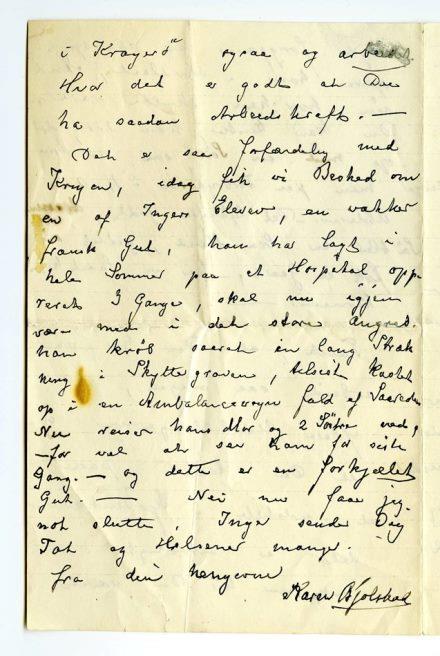 i Kragerø ogsaa og arbeide.
Hvor det er godt at Du
ha saadan Arbeidskraft. —
Det er saa forfærdelig med
Krigen, idag fik vi Besked om
en af Ingers Elever, en vakker
fransk Gut, han har lagt i
hele Sommer paa et Hospital ope-
reret 3 Gange, skal nu igjen
være med i det store Angreb.
han krøb saaret en lang Stræk
ning i Skyttegraven, tilsist kastet
op i en Ambulancevogn fuld af Saarede
Nu reiser hans Mor og 2 Søstre ned,
— for vel at se ham for siste
Gang. — og dette er en forkjællet
Gut. — Nei nu faar jeg
nok slutte, Inger sender Dig
Tak og Hilsener mange.
fra din hengivne
Karen